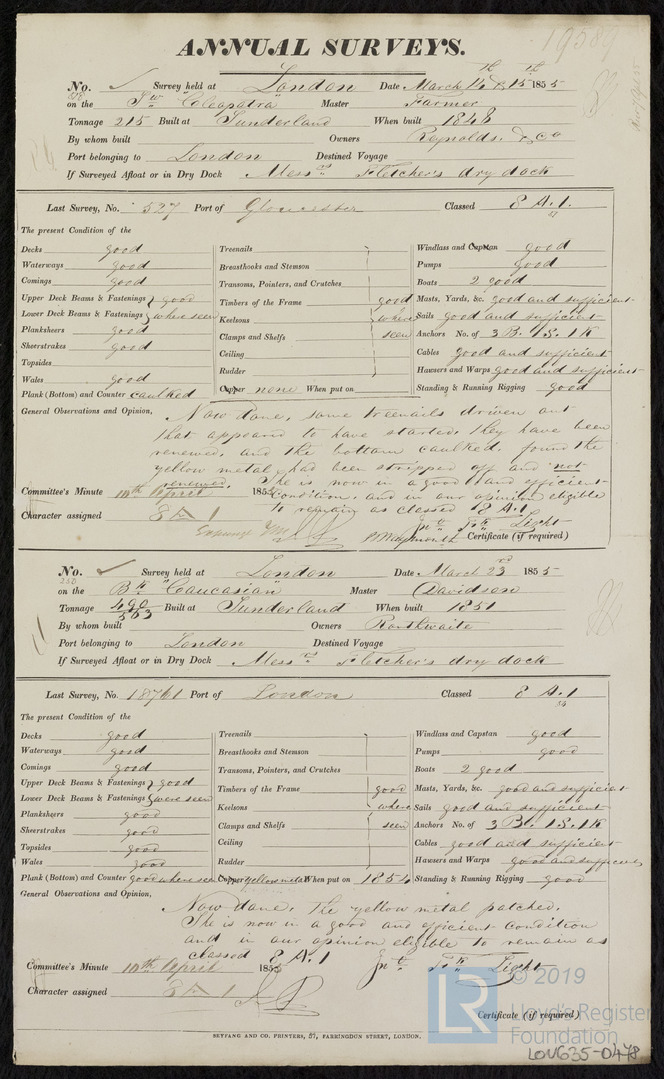 19589
ANNUAL SURVEYS.
No. ✓ Survey held at London Date March 14th & 15th 1855
on the Sw "Cleopatra" Master Farmer
Tonnage 215 Built at Sunderland When built 1846
By whom built Owners Reynolds & Co
Port belonging to London Destined Voyage
If Surveyed Afloat or in Dry Dock Messrs Fletcher's dry dock
Last Survey, No. 527 Port of Gloucester Classed 8 A.1.
The present Condition of the
Decks good Treenails Windlass and Capstan good
Waterways good Breasthooks and Stemson Pumps good
Comings good Transoms, Pointers, and Crutches Boats 2 good
Upper Deck Beams & Fastenings } good Timbers of the Frame good Masts, Yards, &c. good and sufficient
Lower Deck Beams & Fastenings } where seen Keelsons where Sails good and sufficient
Planksheers good Clamps and Shelfs seen Anchors No. of 3 B. 1S. 1K
Sheerstrakes good Ceiling Cables good and sufficient
Topsides Rudder Hawsers and Warps good and sufficient
Wales good Copper none When put on Standing & Running Rigging good
Plank (Bottom) and Counter caulked
General Observations and Opinion, Now done, some treenails driven out
that appeared to have started, they have been
renewed, and the bottom caulked, found the
yellow metal had been stripped off and not
renewed. She is now in a good and efficient
Committee's Minute 10th April 1855 condition, and in our opinion eligible
to remain as classed 8 A.1
Character assigned 8 A 1 Light
Certificate (if required)
No. ✓ Survey held at London Date March 23rd 1855
on the Bk "Caucasian" Master Davidson
Tonnage 490 563 Built at Sunderland When built 1851
By whom built Owners Ronthwaite
Port belonging to London Destined Voyage
If Surveyed Afloat or in Dry Dock Messrs Fletcher's dry dock
Last Survey, No. 18761 Port of London Classed 8 A.1
The present Condition of the
Decks good Treenails Windlass and Capstan good
Waterways good Breasthooks and Stemson Pumps good
Comings good Transoms, Pointers, and Crutches Boats 2 good
Upper Deck Beams & Fastenings } good Timbers of the Frame good Masts, Yards, &c. good and sufficient
Lower Deck Beams & Fastenings } were seen Keelsons where Sails good and sufficient
Planksheers good Clamps and Shelfs seen Anchors No. of 3 B. 1S. 1K
Sheerstrakes good Ceiling Cables good and sufficient
Topsides good Rudder Hawsers and Warps good and sufficient
Wales good Copper yellow metal When put on 1854 Standing & Running Rigging good
Plank (Bottom) and Counter good where seen
General Observations and Opinion, Now done, The yellow metal patched.
She is now in a good and efficient condition
and in our opinion eligible to remain as
classed 8 A.1
Committee's Minute 10th April 1855 Light
Character assigned 8 A 1
Certificate (if required)
SEYFANG AND CO. PRINTERS, 57, FARRINGDON STREET, LONDON.
LR © 2019
Lloyd's Register
Foundation
LON635-0478